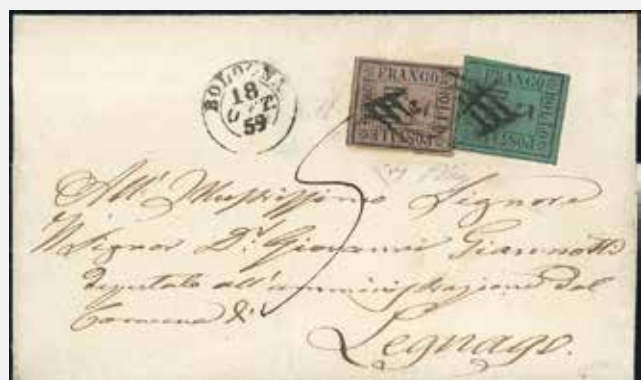 BOLOGNA
18
OTT.
59
FRANCO
BOLLO
POSTALE
FRANCO
BOLLO
POSTALE
5
All' Illustrissimo Signore
Il Signor Dr. Giovanni Giannotti
deputato all'amministrazione del
Comune di
Legnago.